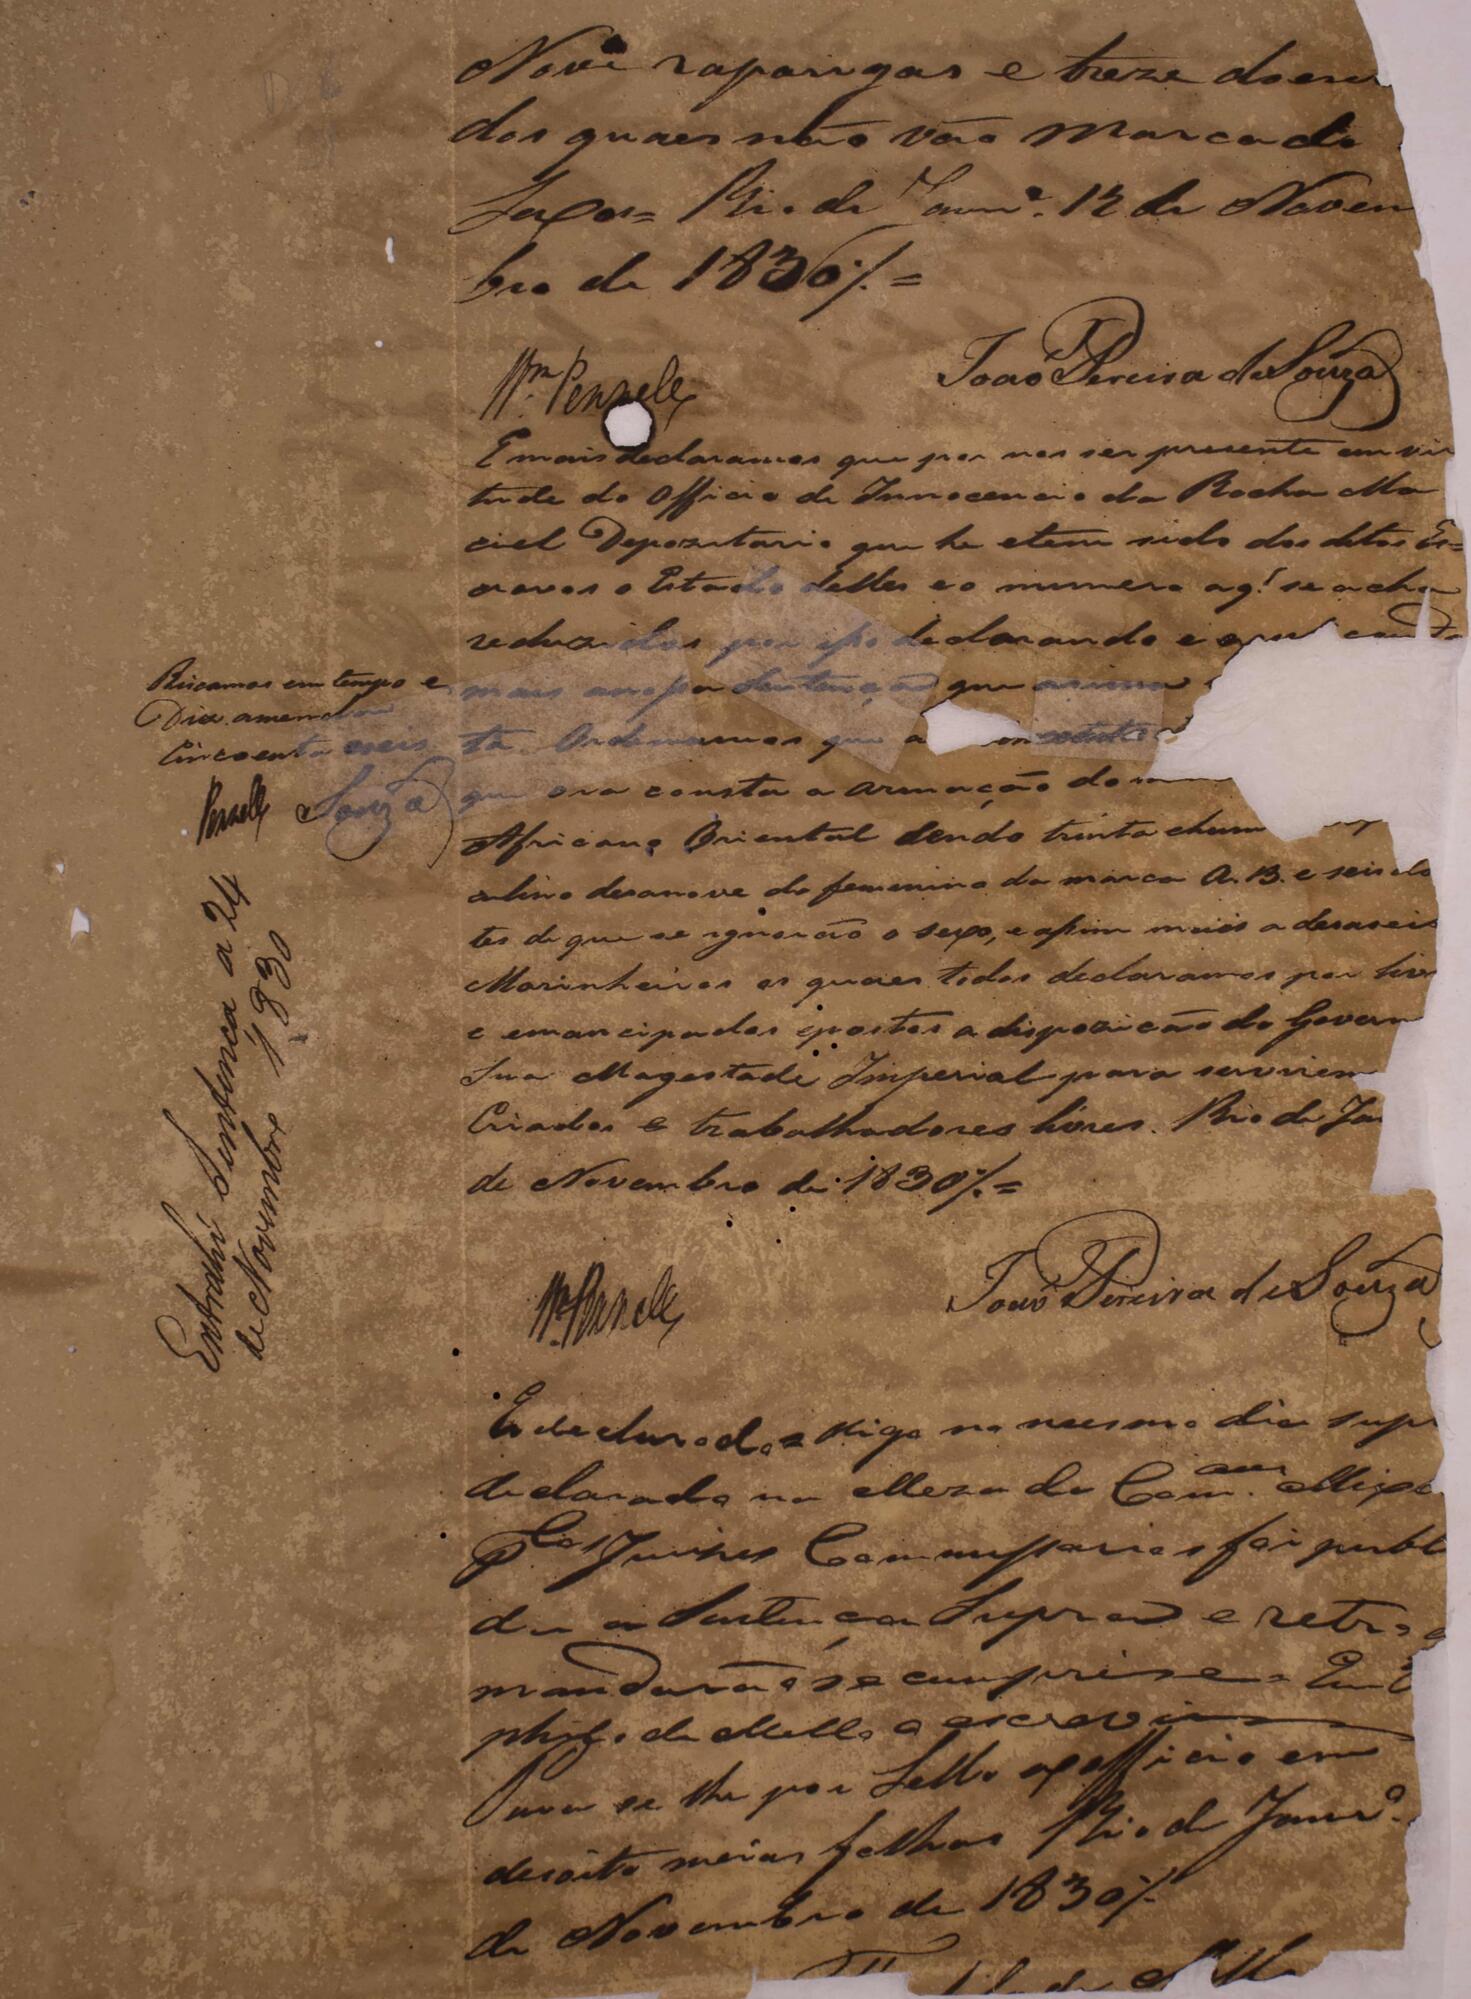 Nove raparigas e treze doen
dos quaes não vão marcado
Sexos = Rio de Janrº. 12 de Novem
bro de 1830 //. =
Wm. Pennell
João Pereira de Souza
E mais declaramos que por nos ser presente em vir
tude do Officio de Innocencio da Rocha Ma
ciel Depozitario que he e tem sido dos ditos Es=
cravos o Estado delles e o numero a q! se acha
reduzidos por isso declarando e
mais a nossa Sentença que acima
ta. Ordenamos que a
que ora consta a armação do
Africano Oriental sendo trinta e hum
culino desanove do femenino da marca A.B. e seis do
tes de que se ignorão o sexo, e assim mais a desaseis
Marinheiros os quaes todos declaramos por livr
e emancipados e postos a dispozicão do Govern
Sua Magestade Imperial para servirem
Criados e trabalhadores livres. Rio de Ja
de Novembro de 1830 //. =
Riscamos em tempo e
Diz. amenda
Cincoenta e seis
Pennell e Souza
Extrahi Sentença a 24
de Novembro 1830
Wm. Pennell
João Pereira de Souza
E declarado digo no mesmo dia supr
declarado na Meza da Comam. Mixta
pelos Juizes Commissarios foi publ
da a Sentença Supra e retro e
mandarão se cumprise = Eu
philo de Mello o escrevi
Pava se lhe por Sello ex officio em
desoito meias folhas Rio de Janrº.
de Novembro de 1830 //.
de Mello